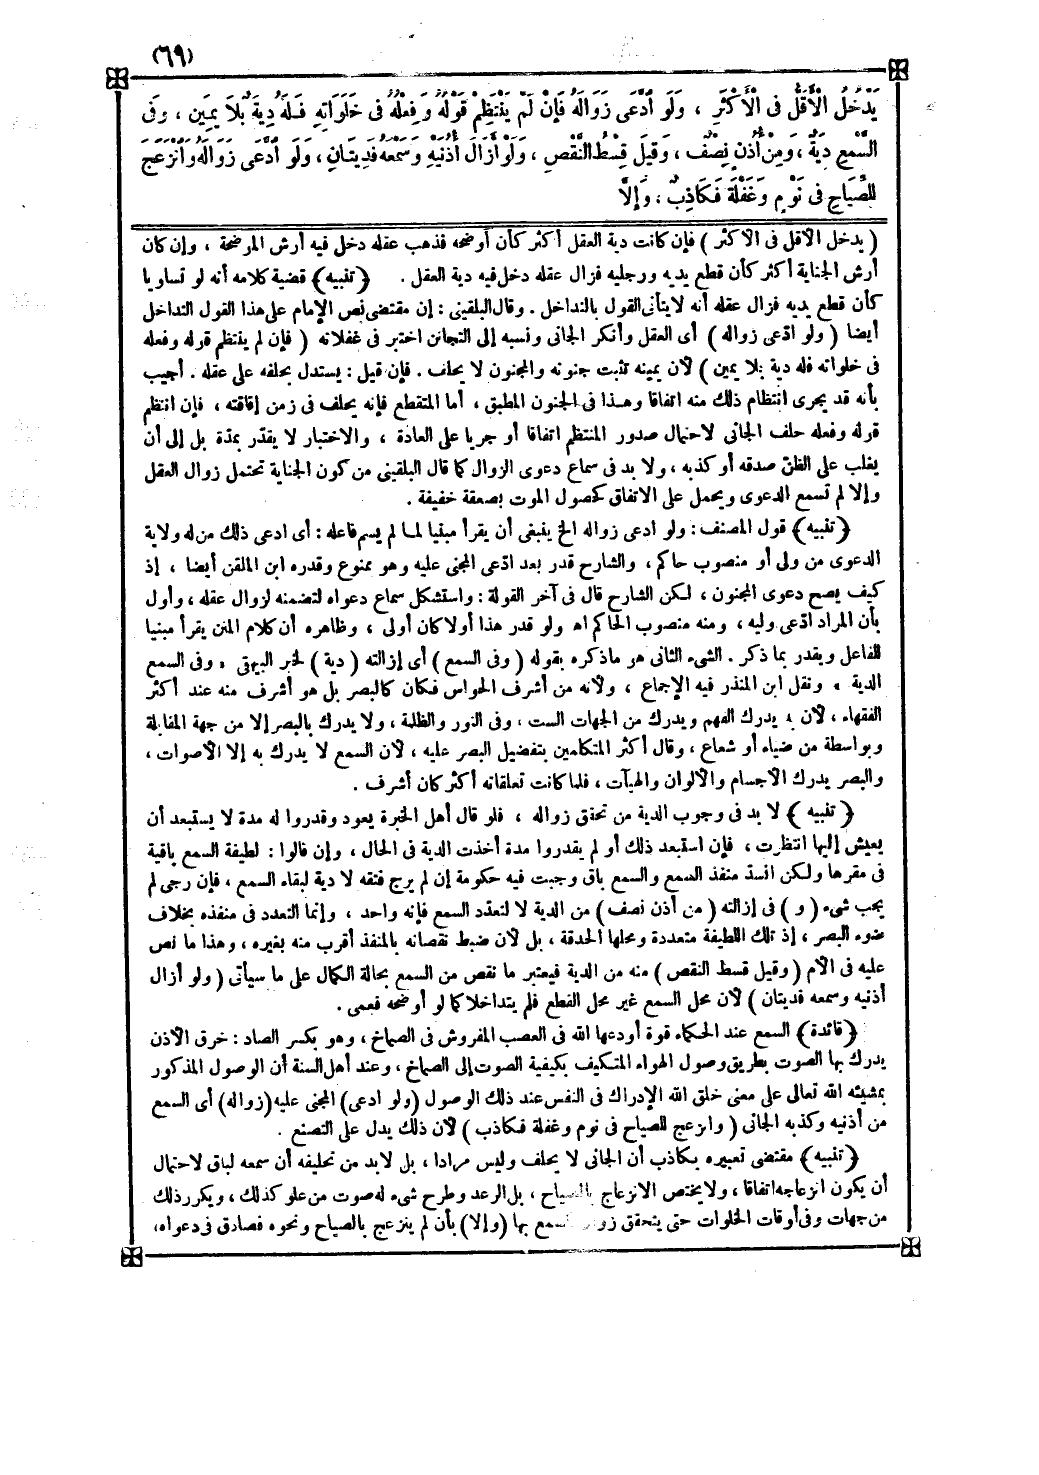 (٦٩)
يَدْخُلُ الْأَقَلُّ فِى الْأَكْثَرِ ، وَلَوِ ادَّعَى زَوَالَهُ فَإِنْ لَمْ يَنْتَظِمْ قَوْلُهُ وَفِعْلُهُ فِى خَلَوَاتِهِ فَلَهُ دِيَةٌ بِلَا يَمِينٍ ، وَفِى
السَّمْعِ دِيَةٌ ، وَمِنْ أُذُنٍ نِصْفٌ ، وَقِيلَ قِسْطُ النَّقْصِ ، وَلَوْ أَزَالَ أُذُنَيْهِ وَسَمْعَهُ فَدِيَتَانِ ، وَلَوِ ادَّعَى زَوَالَهُ وَانْزَعَجَ
لِلصِّيَاحِ فِى نَوْمٍ وَغَفْلَةٍ فَكَاذِبٌ ، وَإِلَّا
( يدخل الأقل فى الأكثر ) فإن كانت دية العقل أكثر كأن أوضحه فذهب عقله دخل فيه أرش الموضحة ، وإن كان
أرش الجناية أكثر كأن قطع يديه ورجليه فزال عقله دخل فيه دية العقل . ﴿ تنبيه ﴾ قضية كلامه أنه لو تساويا
كأن قطع يديه فزال عقله أنه لا يتأتى القول بالتداخل . وقال البلقينى : إن مقتضى نص الإمام على هذا القول التداخل
أيضا ( ولو ادّعى زواله ) أى العقل وأنكر الجانى ونسبه إلى التجانن اختبر فى غفلاته ( فإن لم ينتظم قوله وفعله
فى خلواته فله دية بلا يمين ) لأن يمينه تثبت جنونه والمجنون لا يحلف . فإن قيل : يستدل بحلفه على عقله . أجيب
بأنه قد يجرى انتظام ذلك منه اتفاقا وهذا فى الجنون المطبق ، أما المتقطع فإنه يحلف فى زمن إفاقته ، فإن انتظم
قوله وفعله حلف الجانى لاحتمال صدور المنتظم اتفاقا أو جريا على العادة ، والاختبار لا يقدّر بمدّة بل إلى أن
يغلب على الظنّ صدقه أو كذبه ، ولا بد فى سماع دعوى الزوال كما قال البلقينى من كون الجناية تحتمل زوال العقل
وإلا لم تسمع الدعوى ويحمل على الاتفاق كحصول الموت بصعقة خفيفة .
﴿ تنبيه ﴾ قول المصنف : ولو ادعى زواله الخ ينبغى أن يقرأ مبنيا لما لم يسم فاعله : أى ادعى ذلك من له ولاية
الدعوى من ولى أو منصوب حاكم ، والشارح قدر بعد ادّعى المجنى عليه وهو ممنوع وقدره ابن الملقن أيضا ، إذ
كيف يصح دعوى المجنون ، لكن الشارح قال فى آخر القولة : واستشكل سماع دعواه لتضمنه لزوال عقله ، وأول
بأن المراد ادّعى وليه ، ومنه منصوب الحاكم اه ولو قدر هذا أولا كان أولى ، وظاهره أن كلام المتن يقرأ مبنيا
للفاعل ويقدر بما ذكر . الشىء الثانى هو ماذكره بقوله ( وفى السمع ) أى إزالته ( دية ) لخبر البيهقى « وفى السمع
الدية » ونقل ابن المنذر فيه الإجماع ، ولأنه من أشرف الحواس فكان كالبصر بل هو أشرف منه عند أكثر
الفقهاء ، لأن به يدرك الفهم ويدرك من الجهات الست ، وفى النور والظلمة ، ولا يدرك بالبصر إلا من جهة المقابلة
وبواسطة من ضياء أو شعاع ، وقال أكثر المتكلمين بتفضيل البصر عليه ، لأن السمع لا يدرك به إلا الأصوات ،
والبصر يدرك الأجسام والألوان والهيآت ، فلما كانت تعلقاته أكثر كان أشرف .
﴿ تنبيه ﴾ لا بد فى وجوب الدية من تحقق زواله ، فلو قال أهل الخبرة يعود وقدروا له مدة لا يستبعد أن
يعيش إليها انتظرت ، فإن استبعد ذلك أو لم يقدروا مدة أخذت الدية فى الحال ، وإن قالوا : لطيفة السمع باقية
فى مقرها ولكن انسد منفذ السمع والسمع باق وجبت فيه حكومة إن لم يرج فتقه لا دية لبقاء السمع ، فإن رجى لم
يجب شىء ( و ) فى إزالته ( من أذن نصف ) من الدية لا لتعدّد السمع فإنه واحد ، وإنما التعدد فى منفذه بخلاف
ضوء البصر ، إذ تلك اللطيفة متعددة ومحلها الحدقة ، بل لأن ضبط نقصانه بالمنفذ أقرب منه بغيره ، وهذا ما نص
عليه فى الأم ( وقيل قسط النقص ) منه من الدية فيعتبر ما نقص من السمع بحالة الكمال على ما سيأتى ( ولو أزال
أذنيه وسمعه فديتان ) لأن محل السمع غير محل القطع فلم يتداخلا كما لو أوضحه فعمى .
﴿ فائدة ﴾ السمع عند الحكماء قوة أودعها الله فى العصب المفروش فى الصماخ ، وهو بكسر الصاد : خرق الأذن
يدرك بها الصوت بطريق وصول الهواء المتكيف بكيفية الصوت إلى الصماخ ، وعند أهل السنة أن الوصول المذكور
بمشيئة الله تعالى على معنى خلق الله الإدراك فى النفس عند ذلك الوصول (ولو ادعى) المجنى عليه (زواله) أى السمع
من أذنيه وكذبه الجانى ( وانزعج للصياح فى نوم وغفلة فكاذب ) لأن ذلك يدل على التصنع .
﴿ تنبيه ﴾ مقتضى تعبيره بكاذب أن الجانى لا يحلف وليس مرادا ، بل لابد من تحليفه أن سمعه لباق لاحتمال
أن يكون انزعاجه اتفاقا ، ولا يختص الانزعاج بالصياح ، بل الرعد وطرح شىء له صوت من علو كذلك ، ويكرر ذلك
من جهات وفى أوقات الخلوات حتى يتحقق زوال السمع بها (وإلا) بأن لم ينزعج بالصياح ونحوه فصادق فى دعواه،